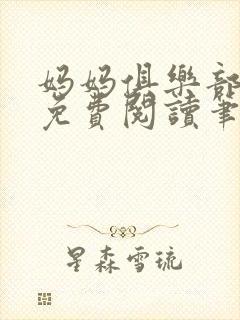 妈妈俱樂部
免費閱讀筆
星森雪琉